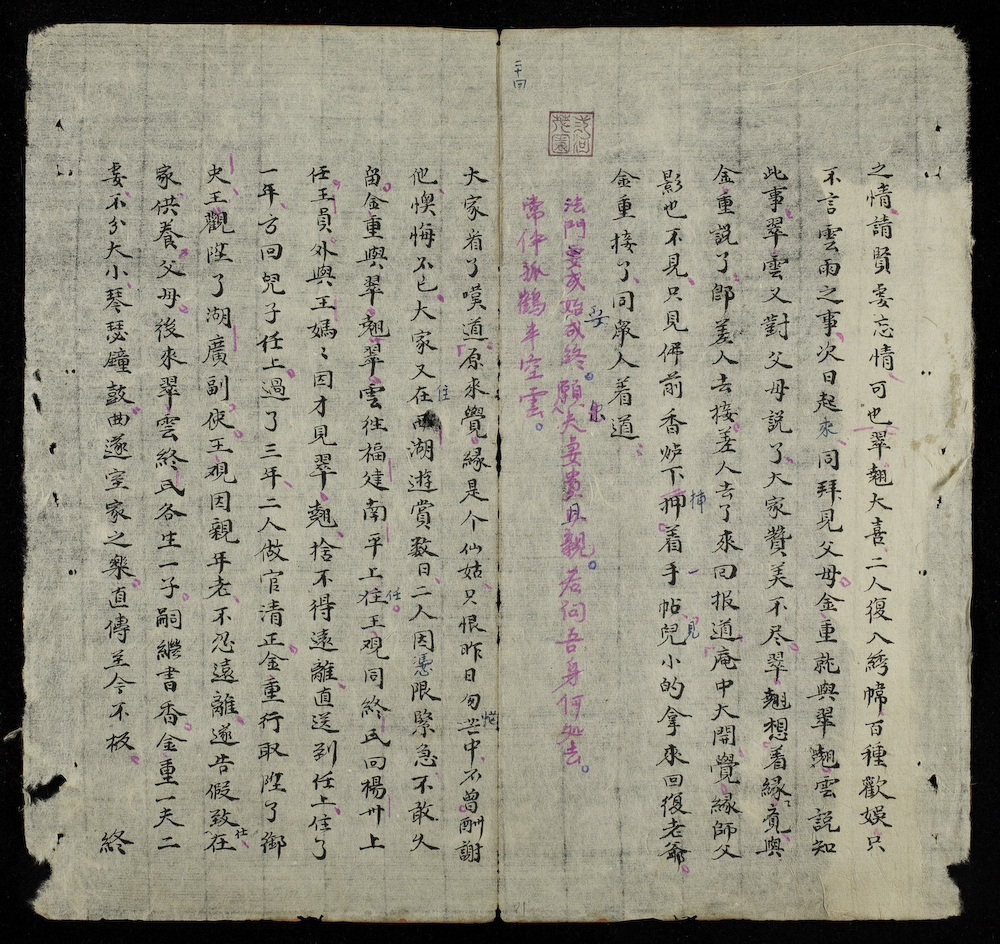 二十回
之情請賢妻忘情可也翠翹大喜二人復入綉幃百種歡娛只
不言雲雨之事次日起來同拜見父母金重就與翠翹雲説知
此事翠雲又對父母説了大家贊美不尽翠翹想着緣竟與
金重説了即差人去接差人去了來回报道庵中大開覺緣師父
影也不見只見佛前香炉下押着手帖兒小的拿來回復老爺
插
一
見
金重接了同眾人着道
法門要成始成終願夫妻貴且親若问吾身何処去
妥
尔
常伴孤鶴半空雲
大家看了嘆道原來覺緣是个仙姑只恨昨日匆茫中不曾酬謝
忙
他懊悔不已大家又在西湖遊賞数日二人因憑限緊急不敢久
住
留金重與翠翹翠雲往福建南平上住王观同終氏回楊州上
任
任王員外與王媽〻因才見翠翹捨不得遠離直送到任上住了
一年方回兒子任上過了三年二人做官清正金重行取陞了御
史王觀陞了湖廣副使王观因親年老不忍遠離遂告假致在
仕
家供養父母後來翠雲終氏各生一子嗣繼書香金重一夫二
妻不分大小琴瑟鐘鼓曲遂室家之樂直傳至今不极
終
21